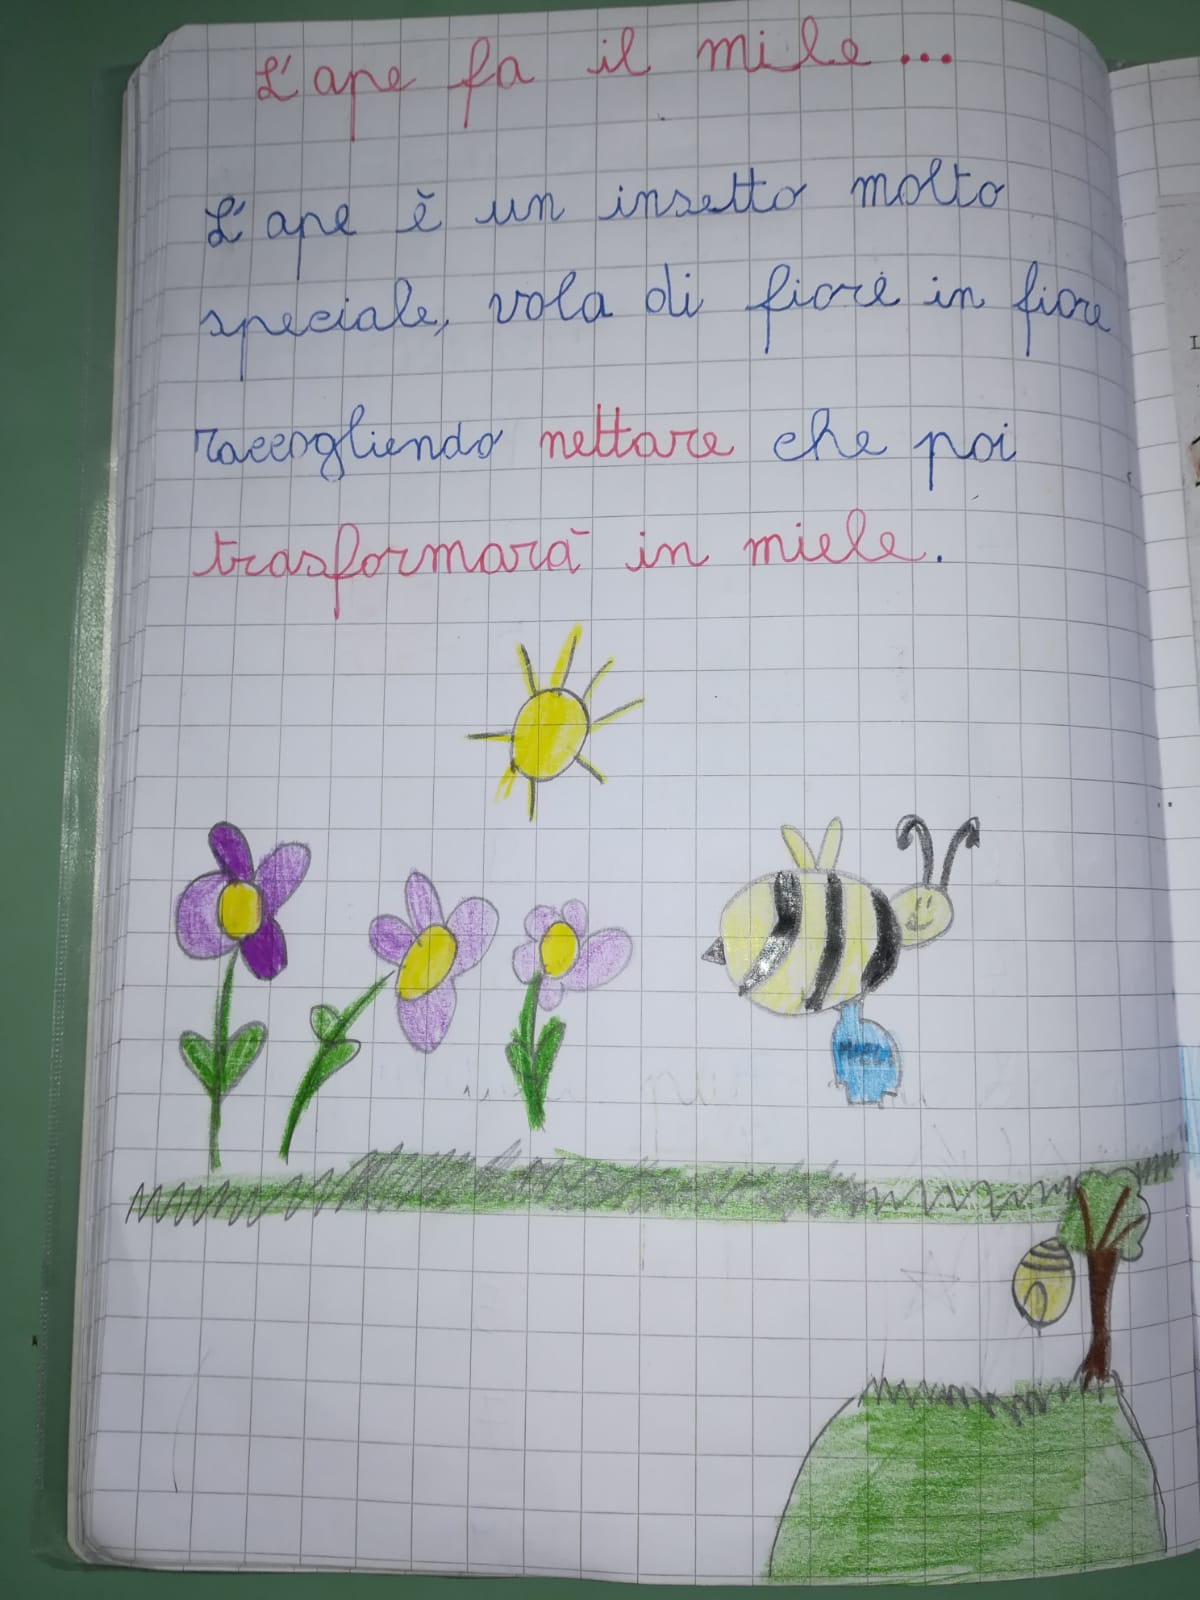 L'ape fa il mile...
L'ape è un insetto molto
speciale, vola di fiore in fiore
raccogliendo nettare che poi
trasformarà in miele.